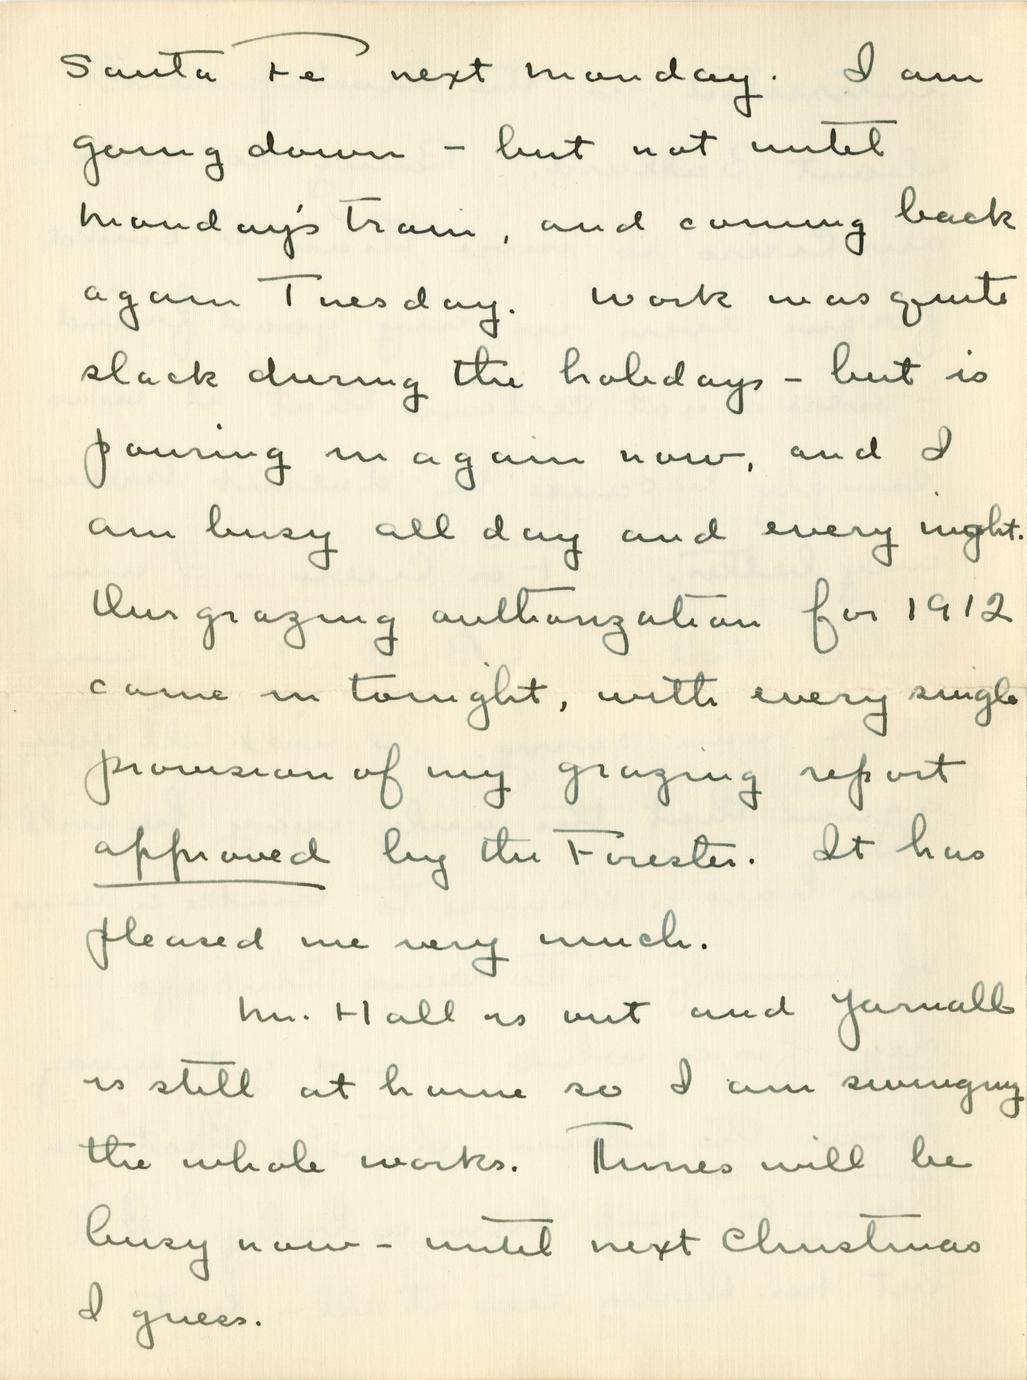 Santa Fe next Monday. I am
going down - but not until
Monday's train, and coming back
again Tuesday. Work was quite
slack during the holidays - but is
pouring in again now, and I
am busy all day and every night.
The grazing authorization for 1912
came in tonight, with every single
provision of my grazing report
approved by the Forester. It has
pleased me very much.
Mr. Hall is out and Yarnall
is still at home so I am swinging
the whole works. Times will be
busy now - until next Christmas
I guess.